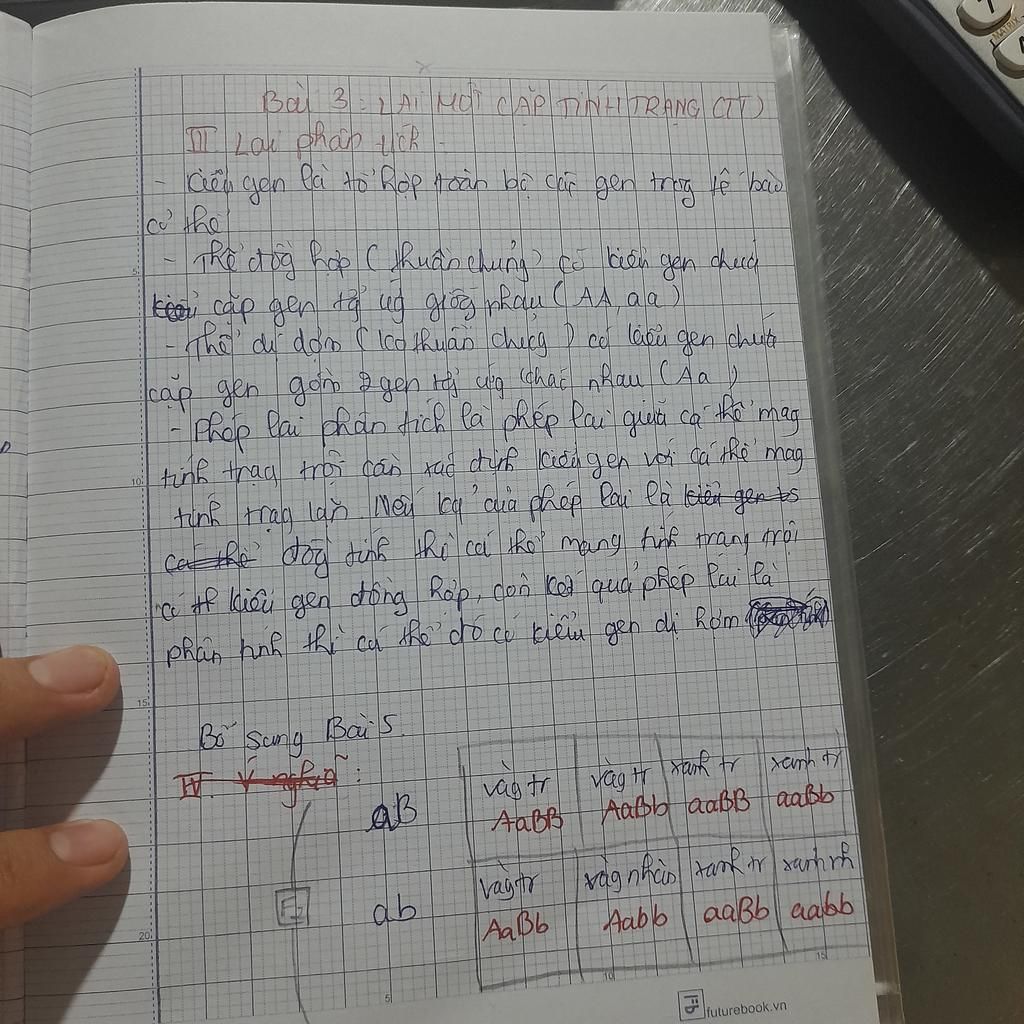 Bài 3: LAI MỘT CẶP TÍNH TRẠNG (TT)
III Lai phân tích
- Kiểu gen là tổ hợp toàn bộ các gen trog tế bào
cơ thể
- Thể đồg hợp (thuần chủng) có kiểu gen chứa
cặp gen tg ứg giốg nhau (AA, aa)
- Thể dị hợm (ko thuần chủcg) có kiểu gen chứa
cặp gen gồm 2 gen tg ứg khác nhau (Aa)
- Phép lai phân tích là phép lai giữa cá thể mag
tính trạg trội cần xác định kiểu gen với cá thể mag
tính trạg lặn Nếu kq' của phép lai là kiểu gen
cá thể đồg tính thì cá thể mang tính trạng trội
có kiểu gen đồng hợp, còn kết quả phép lai là
phân tính thì cá thể đó có kiểu gen dị hợm
Bổ sung Bài 5
IV. Ý nghĩa:
vàg tr vàg tr xanh tr xanh tr
aB AaBB AaBb aaBB aaBb
vàg tr vàg nhăn xanh tr xanh nh
F2 ab AaBb Aabb aaBb aabb
5 10 15 20
5 10 15
futurebook.vn
MATRIX